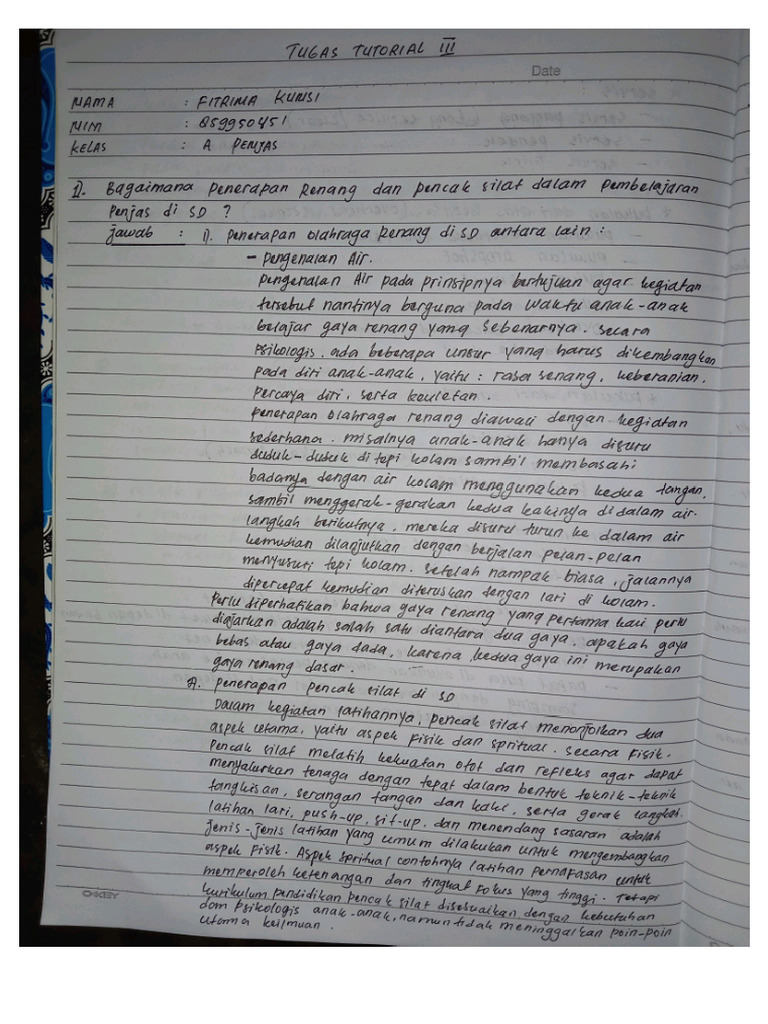 TUGAS TUTORIAL III
Date
NAMA : FITRIMA KUNSI
NIM : 859950451
KELAS : A PENJAS
1). Bagaimana penerapan Renang dan pencak silat dalam pembelajaran
penjas di SD ?
Jawab : 1). penerapan olahraga Renang di SD antara lain :
- Pengenalan Air.
pengenalan Air pada prinsipnya bertujuan agar kegiatan
tersebut nantinya berguna pada waktu anak-anak
belajar gaya renang yang sebenarnya. secara
psikologis. ada beberapa unsur yang harus dikembangkan
pada diri anak-anak, yaitu : rasa senang, keberanian,
percaya diri, serta keuletan.
penerapan olahraga renang diawali dengan kegiatan
sederhana. misalnya anak-anak hanya disuru
duduk-duduk di tepi kolam sambil membasahi
badanya dengan air kolam menggunakan kedua tangan,
sambil menggerak-gerakan kedua kakinya didalam air.
langkah berikutnya, mereka disuru turun ke dalam air
kemudian dilanjutkan dengan berjalan pelan-pelan
menyusuti tepi kolam. setelah nampak biasa, jalannya
dipercepat kemudian diteruskan dengan lari di kolam.
perlu diperhatikan bahwa gaya renang yang pertama kali perlu
diajarkan adalah salah satu diantara dua gaya, apakah gaya
bebas atau gaya dada, karena kedua gaya ini merupakan
gaya renang dasar.
A. penerapan pencak silat di SD
Dalam kegiatan latihannya, pencak silat menonjolkan dua
aspek utama, yaitu aspek fisik dan spritual. secara fisik.
pencak silat melatih kekuatan otot dan refleks agar dapat
menyalurkan tenaga dengan tepat dalam bentuk teknik-teknik
tangkisan, serangan tangan dan kaki, serta gerak langkah.
latihan lari, push-up, sit-up, dan menendang sasaran adalah
jenis-jenis latihan yang umum dilakukan untuk mengembangkan
aspek fisik. Aspek spritual contohnya latihan pernafasan untuk
memperoleh ketenangan dan tingkat fokus yang tinggi. tetapi
kurikulum pendidikan pencak silat disesuaikan dengan kebutuhan
dam psikologis anak-anak, namun tidak meninggalkan poin-poin
utama keilmuan.